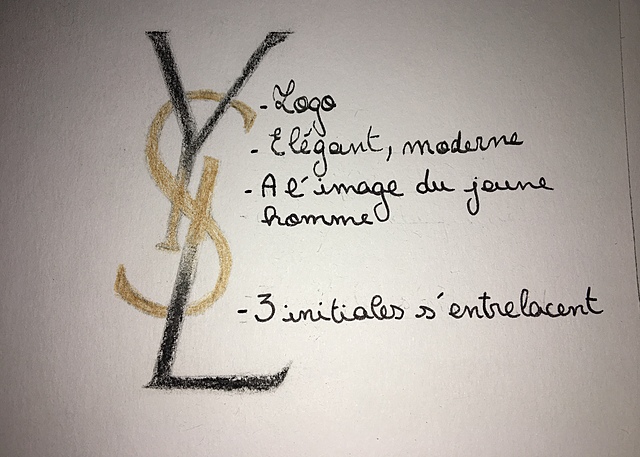 YSL
- Logo
- Elégant, moderne
- A l'image du jeune
homme
- 3 initiales s'entrelacent